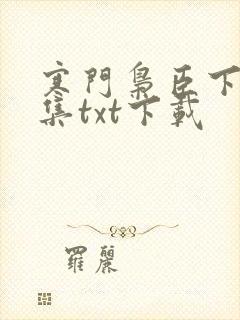 寒門梟臣下
集txt下載
羅麗